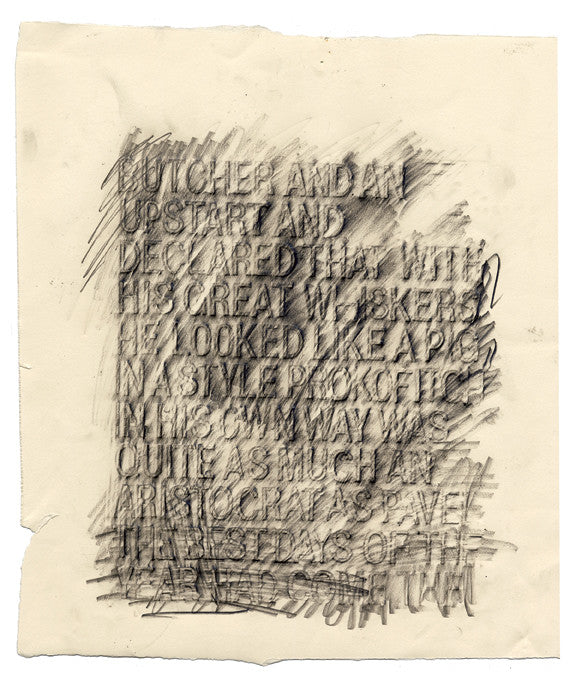 BUTCHER AND AN
UPSTART AND
DECLARED THAT WITH
HIS GREAT WHISKERS
HE LOOKED LIKE A PIG
IN A STYLE PROKOFITCH
IN HIS OWN WAY WAS
QUITE AS MUCH AN
ARISTOCRAT AS PAVEL
THE BEST DAYS OF THE
YEAR HAD COME THE